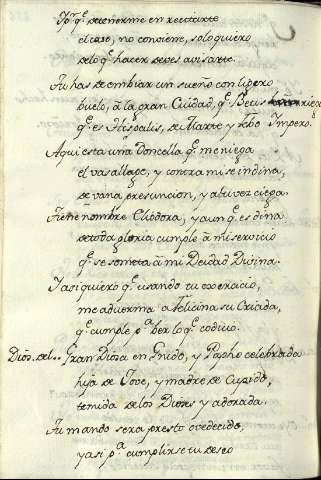 el caso, no conviene, solo quiero
de lo q̃ hacer deves avisarte.
Tu has de embiar un sueño con ligero
buelo, â la gran Ciudad, q̃ Betis riega
q̃ es Hispalis, de Marte y Febo Impero.
Aqui esta una Doncella q̃ me niega
el vasallage, y contra mi se indina,
de vana presuncion, y altivez ciega.
Tiene nombre Cliodora, y aunq̃ es dina
de toda gloria cumple â mi servicio
q̃ se someta â mi Deidad Divina.
I asi quiero q̃ usando tu exercicio,
me aduerma a Felicina su Criada,
q̃ cumple pª ber lo q̃ codicio.
Gran Diosa en Gnido, y Papho celebrada
hija de Jove, y madre de Cupido,
temida de los Dioses y adorada.
Tu mando sera presto ovedecido,
y asi pª cumplirse tu deseo